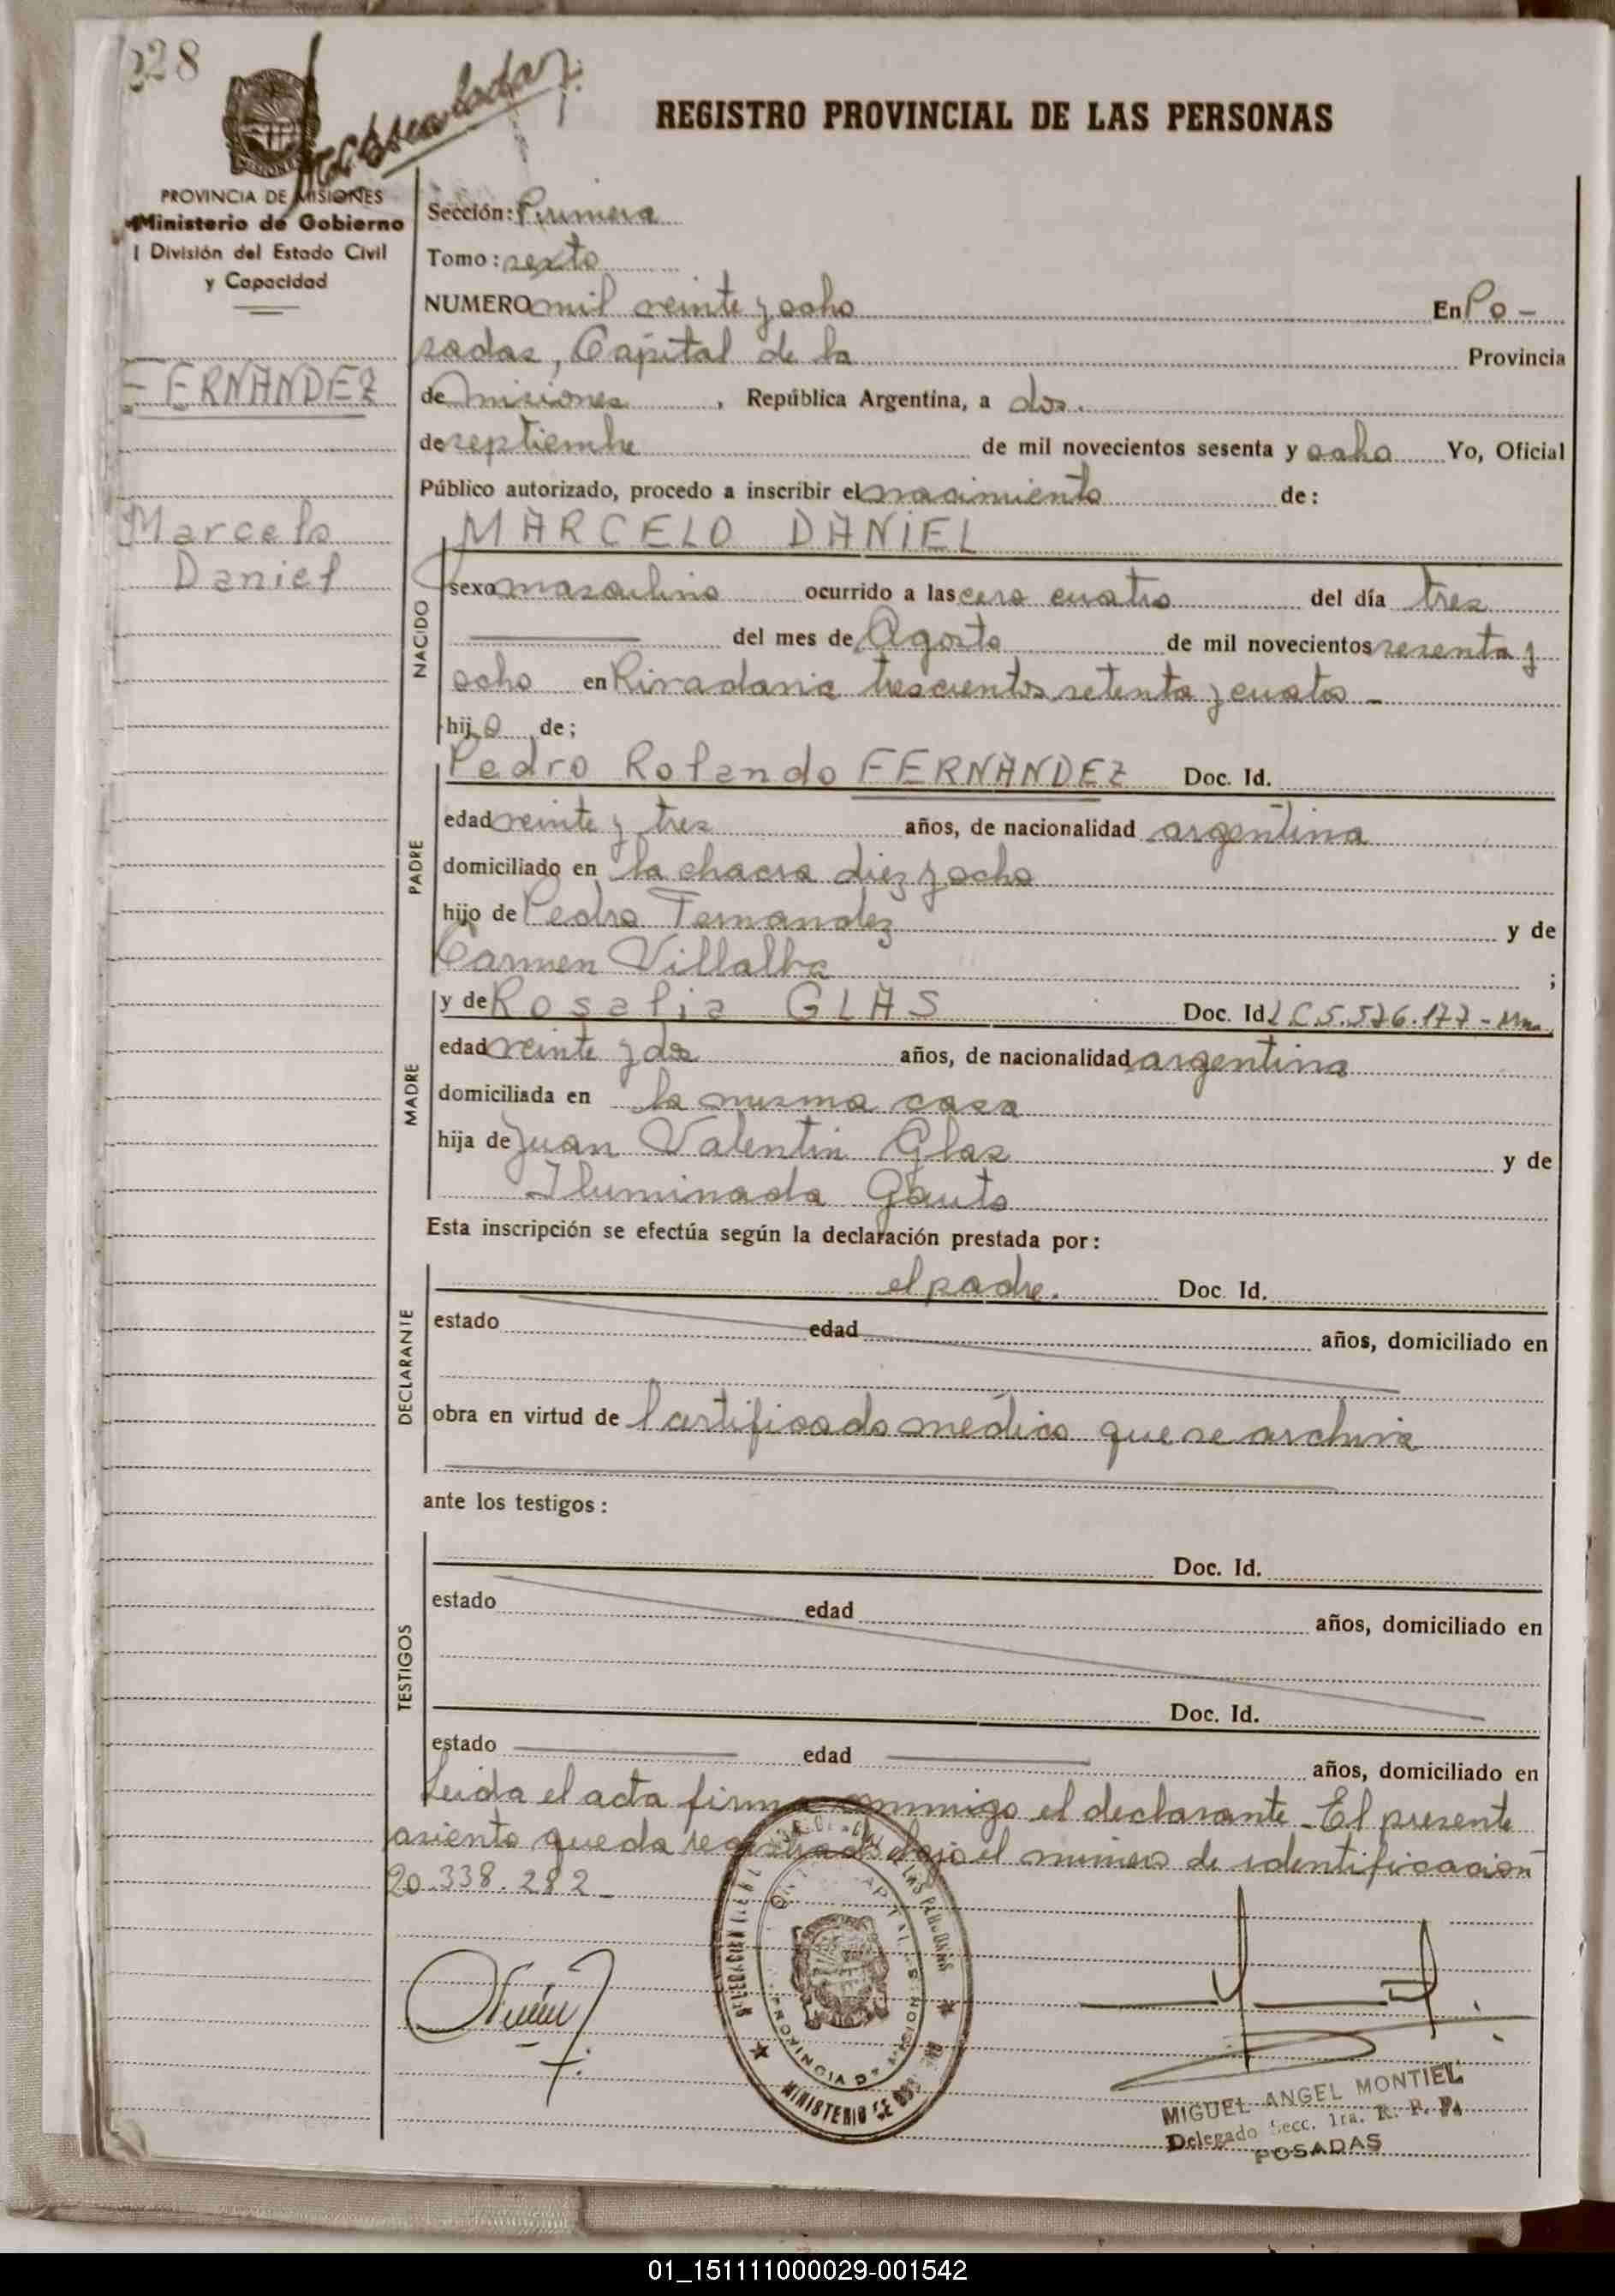 228
REGISTRO PROVINCIAL DE LAS PERSONAS
PROVINCIA DE MISIONES
Ministerio de Gobierno
División del Estado Civil
y Capacidad
FERNANDEZ
Marcelo
Daniel
Sección: Primera
Tomo: sexto
NUMERO mil veinte y ocho En Po-
sadas, Capital de la Provincia
de Misiones, República Argentina, a dos.
de septiembre de mil novecientos sesenta y ocho Yo, Oficial
Público autorizado, procedo a inscribir el nacimiento de:
MARCELO DANIEL
NACIDO
sexo masculino ocurrido a las cero cuatro del día tres
del mes de Agosto de mil novecientos sesenta y
ocho en Rivadavia trescientos setenta y cuatro -
hijo de;
PADRE
Pedro Rolando FERNANDEZ Doc. Id.
edad veinte y tres años, de nacionalidad argentina
domiciliado en la chacra diez y ocho
hijo de Pedro Fernandez y de
Carmen Villalba ;
MADRE
y de Rosalia GLAS Doc. Id L C 5.576.177 -
edad veinte y dos años, de nacionalidad argentina
domiciliada en la misma casa
hija de Juan Valentin Glas y de
Iluminada Gauto
Esta inscripción se efectúa según la declaración prestada por:
DECLARANTE
el padre. Doc. Id.
estado edad años, domiciliado en
obra en virtud de Certificado médico que se archiva
ante los testigos:
TESTIGOS
Doc. Id.
estado edad años, domiciliado en
Doc. Id.
estado edad años, domiciliado en
Leida el acta firma conmigo el declarante - El presente
asiento queda registrado bajo el número de identificación
20.338.282 -
PROVINCIA DE MISIONES
MINISTERIO DE GOB
MIGUEL ANGEL MONTIEL
Delegado Secc. 1ra. R. P. P.
POSADAS
01_151111000029-001542